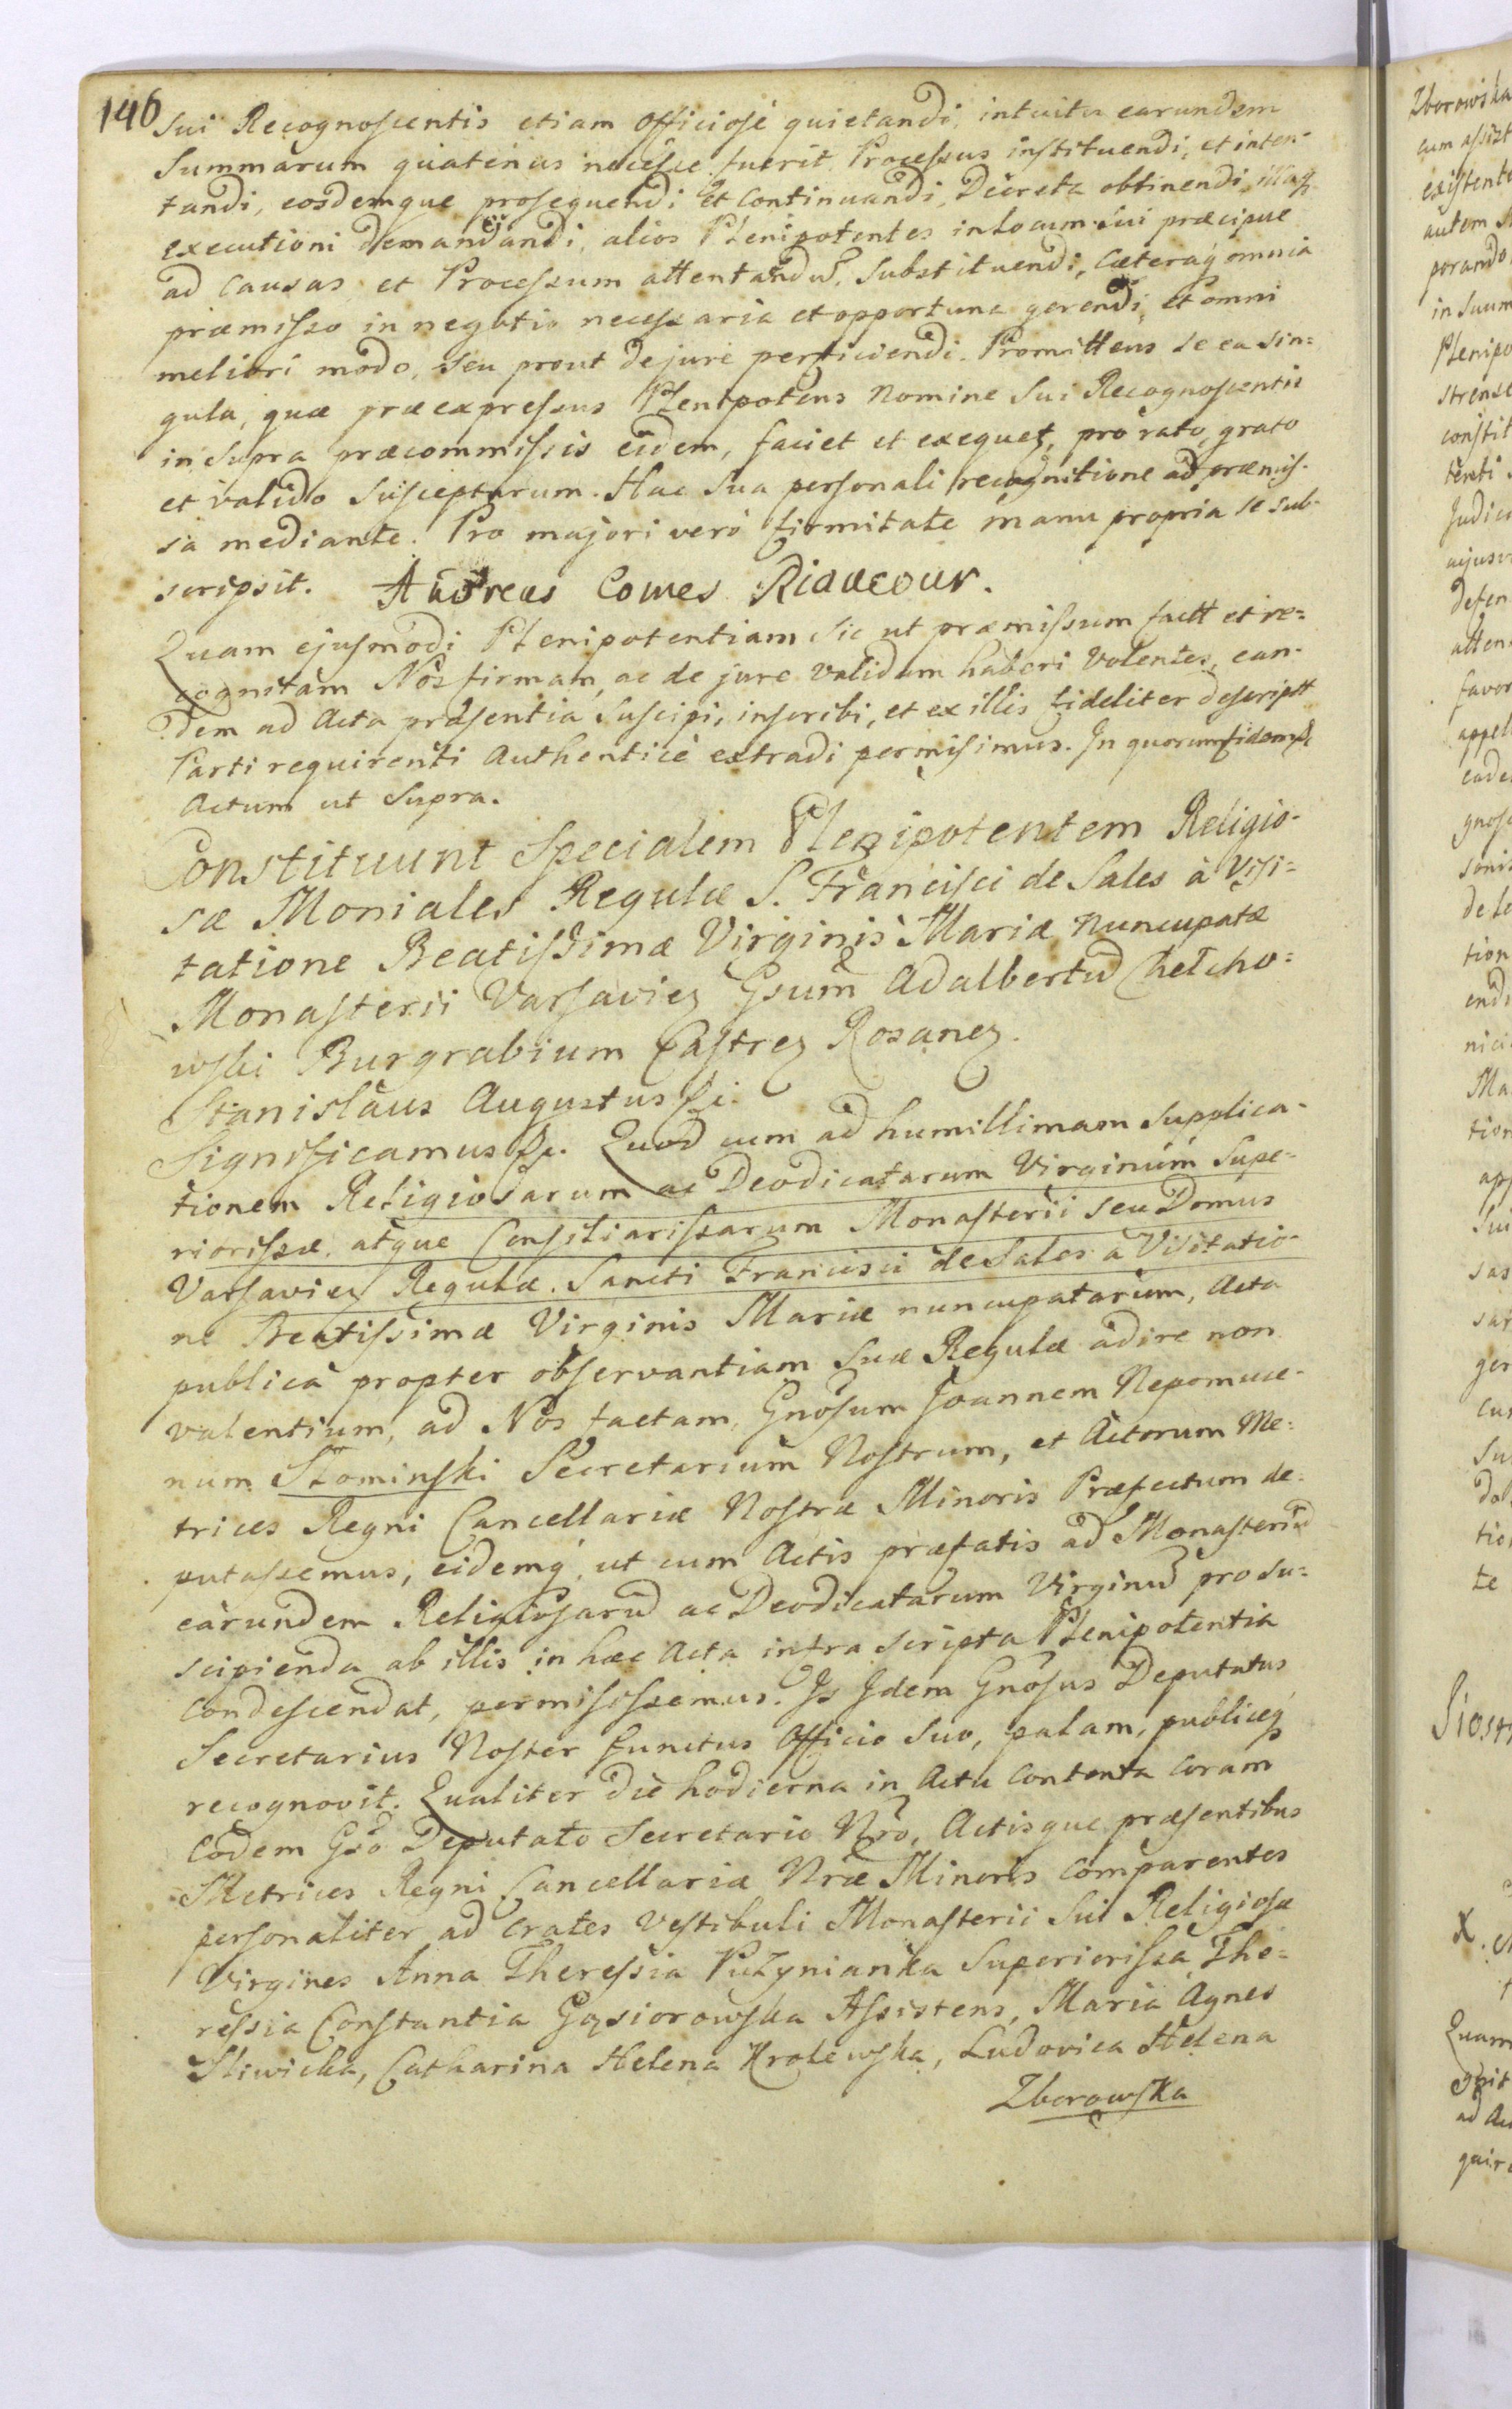 146
Sui Recognoscentis etiam Officiosè quietandi, intuitu earundem
Summarum quatenus necesse fuerit Processus instituendi, et inten-
tandi, eosdemque prosequendi et Continuandi, Decreta obtinendi, illaq́
executioni demandandi, alios Plenipotentes in locum sui præcipue
ad Causas et Processum attentandũ, Substituendi, Cæteraq́ omnia
præmisso in negotio necessaria et opportuna gerendi, et omni
meliori modo, seu prout de jure perficiendi. Promittens se ea sin=
gula, quæ præexpressus Plenipotens Nomine Sui Recognoscentis
in supra præcommissis eidem, faciet et exequet, pro rato, grato
et valido Suscepturum. Hac Sua personali recognitione ad præmis-
sa mediante. Pro majori verò firmitate manu propria se sub-
scripsit. Andreas Comes Riaucour.
Quam ejusmodi Plenipotentiam Sic ut præmissum factt et re=
cognitam Nos firmam, ac de jure validam haberi Volentes, ean-
dem ad Acta præsentia Suscipi, inscribi, et ex illis fideliter descriptt
Parti requirenti Authenticè extradi permisimus. In quorum fidem &
Actum ut Supra.
Constituunt Specialem Plenipotentem Religio-
sæ Moniales Regulæ S. Francisci de Sales à Visi=
tatione Beatissimæ Virginis Mariæ Nuncupatæ
Monasterii Varsavieȝ Gsum̃ Adalbertũ Chelcho=
wski Burgrabium Castreȝ Rosaneȝ.
Stanislaus Augustus &c.
Significamus &c. Quod cum ad humillimam Supplica-
tionem Religiosarum ac Deodicatarum Virginum Supe-
riorissæ, atque Consiliarissarum Monasterii seu Domus
Varsavieȝ Regulæ Sancti Francisci de Sales à Visitatio-
ne Beatissimæ Virginis Mariæ nuncupatarum, Acta
publica propter observantiam Suæ Regulæ adire non
valentium, ad Nos factam, Gnõsum Joannem Nepomuce-
num Słominski Secretarium Nostrum, et Actorum Me-
trices Regni Cancellariæ Nostræ Minoris Præfectum de-
putassemus, eidemq́, ut cum Actis præfatis ad Monasteriũ
earundem Religiosarũ ac Deodicatarum Virginũ pro su=
scipienda ab illis in hæc Acta infra scripta Plenipotentia
Condescendat, permisissemus. Is Idem Gnõsus Deputatus
Secretarius Noster functus Officio Suo, palam, publiceq́
recognovit. Qualiter die hodierna in Actu Contenta Coram
Eodem Gsõ Deputato Secretario Nrõ, Actisque præsentibus
Metrices Regni Cancellariæ Nræ̃ Minoris Comparentes
personaliter ad Crates Vestibuli Monasterii Sui Religiosæ
Virgines Anna Theressia Puzynianka Superiorissa, The=
ressia Constantia Gąsiorowska Assistens, Maria Agnes
Sliwicka, Catharina Helena Krolewska, Ludovica Helena
Zborowska